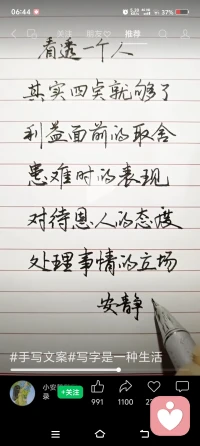 06:44
37%
关注
朋友
推荐
看透一个人
其实四点就够了
利益面前的取舍
患难时的表现
对待恩人的态度
处理事情的立场
安静
#手写文案#写字是一种生活
小安
录
+关注
991
1100